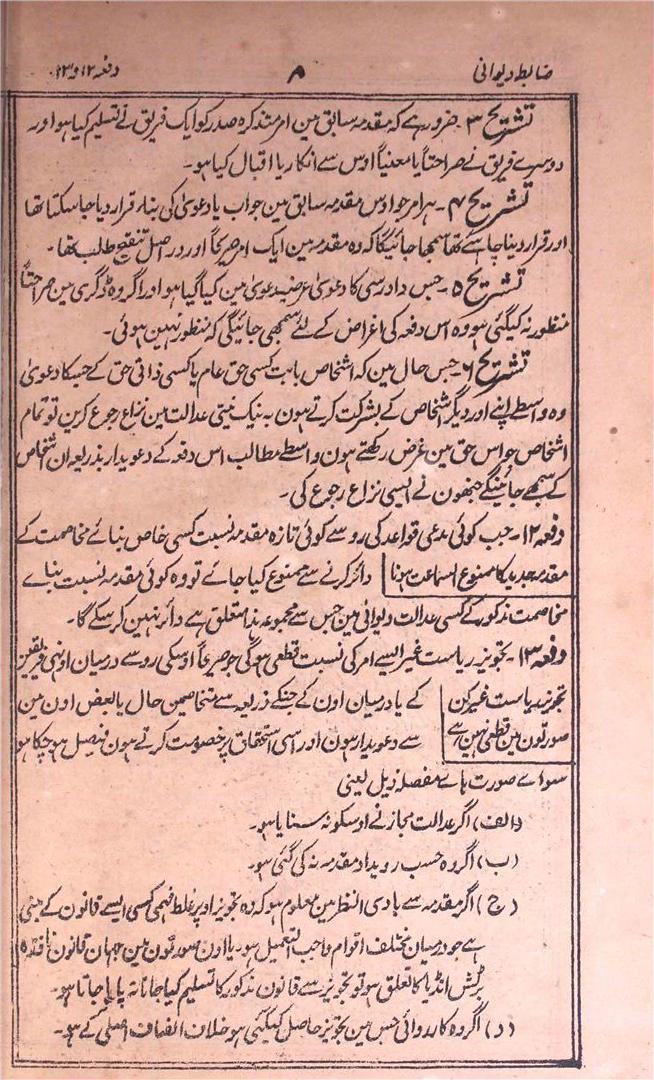 ضابطہ دیوانی ۸ دفعہ ۱۲ و ۱۳
تشریح ۳۔ ضرور ہے کہ مقدمہ سابق مین امر متذکرہ صدر کو ایک فریق نے تسلیم کیا ہو اور
دوسرے فریق نے صراحتاً یا معنیاً اوس سے انکار یا اقبال کیا ہو۔
تشریح ۴۔ ہر امر جو اوس مقدمہ سابق مین جواب یا دعویٰ کی بناء قرار دیا جا سکتا تھا
اور قرار دینا چاہے تھا سمجھا جائیگا کہ وہ مقدمہ مین ایک امر صریحاً اور در اصل تنقیح طلب تھا۔
تشریح ۵۔ جس دادرسی کا دعویٰ عرضیدعویٰ مین کیا گیا ہو اور اگر وہ ڈگری مین صراحتاً
منظور نہ کیگئی ہو وہ اس دفعہ کی اغراض کے لئے سمجھی جائیگی کہ منظور نہین ہوئی۔
تشریح ۶۔ جس حال مین کہ اشخاص بابت کسی حق عام یا کسی ذاتی حق کے جسکا دعویٰ
وہ واسطے اپنے اور دیگر اشخاص کے بشرکت کرتے ہون بہ نیک نیتی عدالت مین نزاع رجوع کرین تو تمام
اشخاص جو اس حق مین غرض رکھتے ہون واسطے مطالب اس دفعہ کے دعویدار بذریعہ ان اشخاص
کے سمجھے جائینگے جنھون نے ایسی نزاع رجوع کی۔
دفعہ ۱۲۔ جب کوئی مدعی قواعد کی رو سے کوئی تازہ مقدمہ نسبت کسی خاص بنائے مخاصمت کے
مقدمہ جدید کا ممنوع السماعت ہونا دائر کرنے سے ممنوع کیا جائے تو وہ کوئی مقدمہ نسبت بناے
مخاصمت مذکور کے کسی عدالت دیوانی مین جس سے مجموعہ ہذا متعلق ہے دائر نہین کر سکے گا۔
دفعہ ۱۳۔ تجویز ریاست غیر ایسے امر کی نسبت قطعی ہوگی جو صریحاً اوسکی رو سے درمیان اونہی فریقین
تجویز ریاست غیر کن کے یا درمیان اون کے جنکے ذریعہ سے متخاصمین حال یا بعض اون مین
صورتون مین قطعی نہین ہے سے دعویدار ہون اور اسی استحقاق پر خصومت کرتے ہون فیصل ہو چکا ہو
سوائے صورت ہائے مفصلہ ذیل یعنی
(الف) اگر عدالت مجاز نے اوسکو نہ سنایا ہو۔
(ب) اگر وہ حسب رویداد مقدمہ نہ کی گئی ہو۔
(ج) اگر مقدمہ سے بادی النظر مین معلوم ہو کہ وہ تجویز اوپر غلط فہمی کسی ایسے قانون کے مبنی
ہے جو درمیان مختلف اقوام واجب التعمیل ہو یا اون صورتون مین جہان قانون نافذہ
برٹش انڈیا کا تعلق ہو تو تجویز سے قانون مذکور کا تسلیم کیا جانا نہ پایا جاتا ہو۔
(د) اگر وہ کارروائی جس مین تجویز حاصل کیگئی ہو خلاف انصاف اصلی کے ہو۔